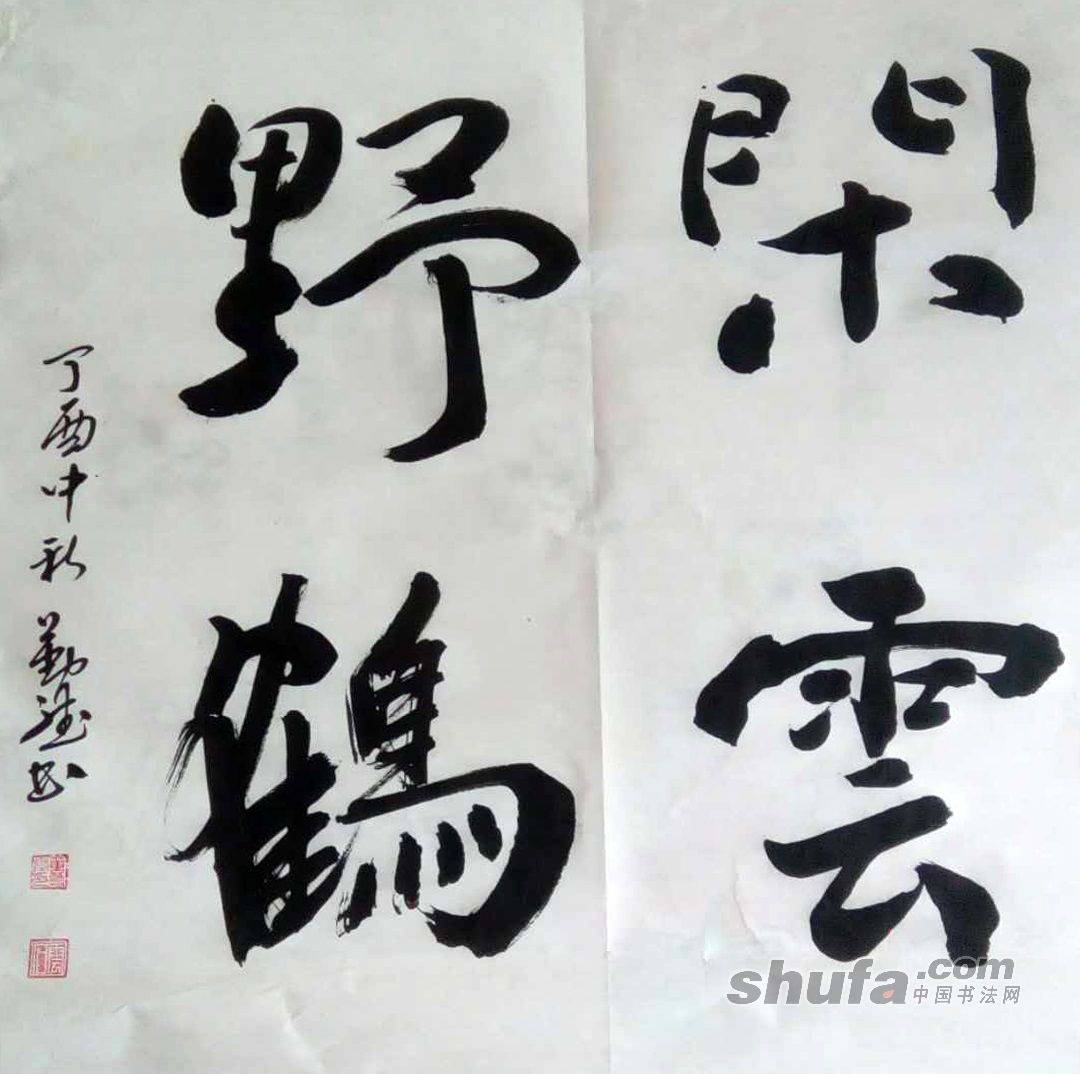 閑雲
野鶴
丁酉中秋勤建书
shufa.com
中国书法网